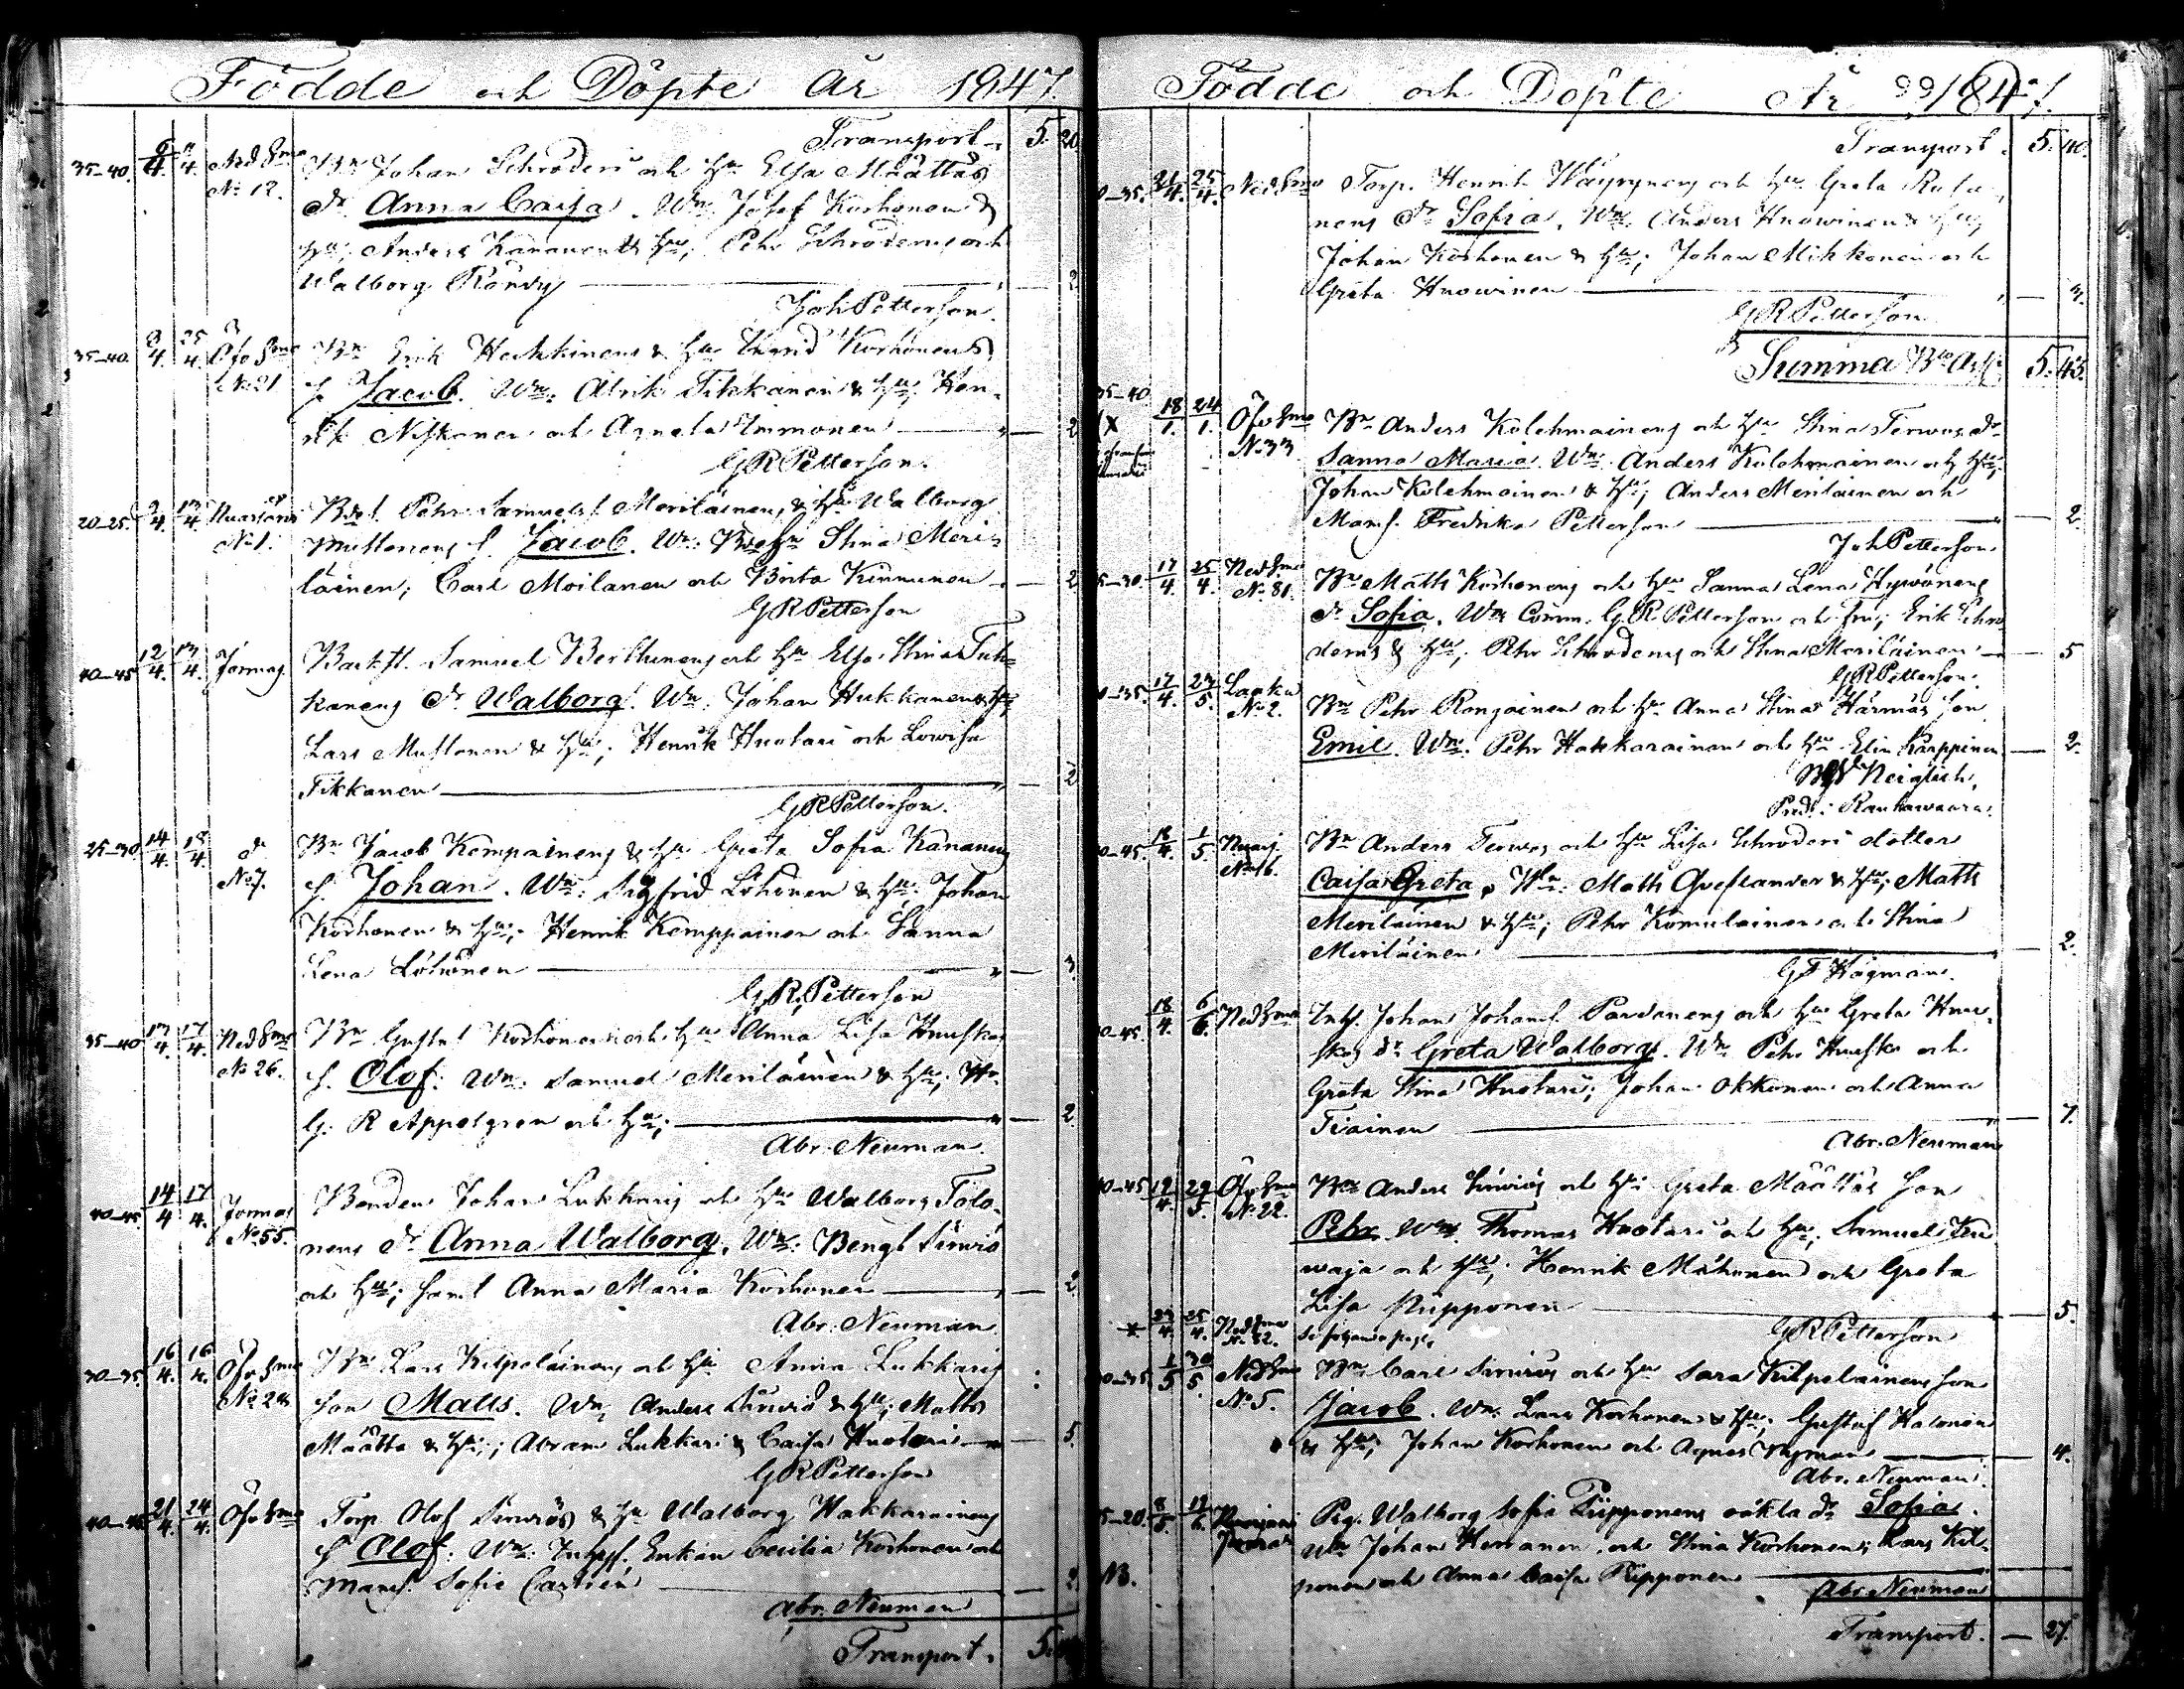 Födde och Döpte År 1847.
Transport. 5. 20
35-40. 6/4. 11/4. Ned Smo Bn Johan Schroderi och Hu Elsa Määttäs
No 12. dr Anna Caisa. Wn: Josef Korhonen &
Hu; Anders Kananen & Hu; Pehr Schroderus och
Walborg Röndy — 2
Joh Petterson.
35-40. 8/4. 25/4. Öfv Smo Bn Erik Heikkinens & Hu Ingrid Korhonens
No 21 s. Jacob. Wn: Alrik Tikkanen & Hu; Hen-
rik Niskanen och Agneta Immonen — 2
G R Petterson.
20-25. 9/4. 13/4. Nuasjärvi Bds. Pehr Samuels. Meriläinen, & Hu Walborg
No 1. Mustonens s. Jacob. Wn: Stina Meri-
läinen; Carl Moilanen och Brita Kinnunen — 2
G R Petterson
40-45 12/4. 13/4. Jormas Backst. Samuel Berthunens och Hu Elsa Stina Tuh-
kanens dr Walborg. Wn: Johan Hukkanen & Hu;
Lars Mustonen & Hu; Henrik Huotari och Lovisa
Tikkanen — 2
G R Petterson.
25-30 14/4. 18/4. do Bn Jacob Kempainens & Hu Greta Sofia Kananens
No 7. s. Johan. Wn: Sigfrid Löhönen & Hu; Johan
Korhonen & Hu; Henrik Kemppainen och Sanna
Lena Löhönen — 3.
G. R. Petterson
35-40 13/4. 17/4. Ned Smo Bn Gustaf Korhonen och Hu Anna Lisa Huuskos
No 26. s. Olof. Wn: Samuel Meriläinen & Hu; Hr
G. R Appelgren och Hu; — 2
Abr. Neuman.
40-45 14/4 17/4. Jormas Bonden Johan Lukkaris och Hu Walborg Tolo-
No 55. nens dr Anna Walborg. Wn: Bengt Sirviö
och Hu; samt Anna Maria Korhonen — 2
Abr. Neuman.
30-35. 16/4. 16/4. Öfv Smo Bn Lars Kilpeläinens och Hu Anna Lukkaris
No 28 son Matts. Wn: Anders Sirviö & Hu; Matts
Määttä & Hu; Abram Lukkari & Caisa Huotari — 5.
G R Petterson
40-45 21/4. 24/4. Öfv Smo Torp Olof Sirviös & Hu Walborg Hakkarainens
s Olof: Wn: Enkan Cecilia Korhonen och
Mams. Sofie Castrén — 2
Abr. Neuman
Transport. 5.
Födde och Döpte År 1847.
Transport. 5. 40.
0-35. 21/4. 25/4. Ned Smo Torp. Henrik Wäyrynens och Hu Greta Rata-
nens dr Sofia. Wn: Anders Huovinen & Hu;
Johan Korhonen & Hu; Johan Mikkonen och
Greta Huovinen — 3.
G R Petterson
Summa 5. 43.
35-40 18/1. 24/1. Öfv Smo Bn Anders Kolehmainens och Hu Stina Tervos dr
No 33 Sanna Maria. Wn: Anders Kolehmainen och Hu;
Johan Kolehmainen & Hu; Anders Meriläinen och
Mams. Fredrika Petterson — 2.
Joh Petterson
5-30. 17/4. 25/4. Ned Smo Bn Matts Korhonens och Hu Sanna Lena Hyvönens
No 81. dr Sofia. Wn: Comm. G. R. Petterson och Fru; Erik Schro-
derus & Hu; Pehr Schroderus och Stina Meriläinen — 5
G R Petterson.
0-35. 17/4. 23/5. Laaka Bn Pehr Rongainen och Hu Anna Stina Härmäs son
No 2. Emil. Wn: Pehr Hakkarainen och Hu Elin Karppinen — 2.
Neiglick,
Pred: i Rautawaara.
0-45. 18/4. 1/5. Nuasj. Bn Anders Tervos och Hu Lisa Schroderi dotter
No 16. Caisa Greta. Wn: Matts Greflander & Hu; Matts
Meriläinen & Hu; Pehr Komulainen och Stina
Meriläinen — 2.
G F Hagman.
0-45. 18/4. 6/6. Ned Smo Inhs. Johan Johans. Pardanens och Hu Greta Huu-
skos dr Greta Walborg. Wn: Pehr Huusko och
Greta Stina Huotari; Johan Okkonen och Anna
Tiainen — 7.
Abr. Neuman
40-45 19/4. 29/5. Öfv Smo Bn Anders Sirviös och Hu Greta Määttäs son
No 22. Pehr. Wn: Thomas Huotari och Hu; Samuel Kera-
waja och Hu; Henrik Mähönen och Greta
Lisa Piipponen — 5.
x 23/4. 25/4. Ned Smo No 32. se följande pag. G R Petterson
0-35 1/5 30/5. Ned Smo Bn Carl Sirviös och Hu Sara Kilpeläinens son
No 5. Jacob. Wn: Lars Korhonen & Hu; Gustaf Halonen
& Hu; Johan Korhonen och Agnes Nyman — 4.
Abr. Neuman.
5-20. 8/5. 13/6. Pig. Walborg Sofia Piipponens oäkta dr Sofia.
Wn Johan Hertanen och Stina Korhonen; Lars Kil-
NB. ponen och Anna Caisa Piipponen —
Abr. Neuman
Transport. — 27.